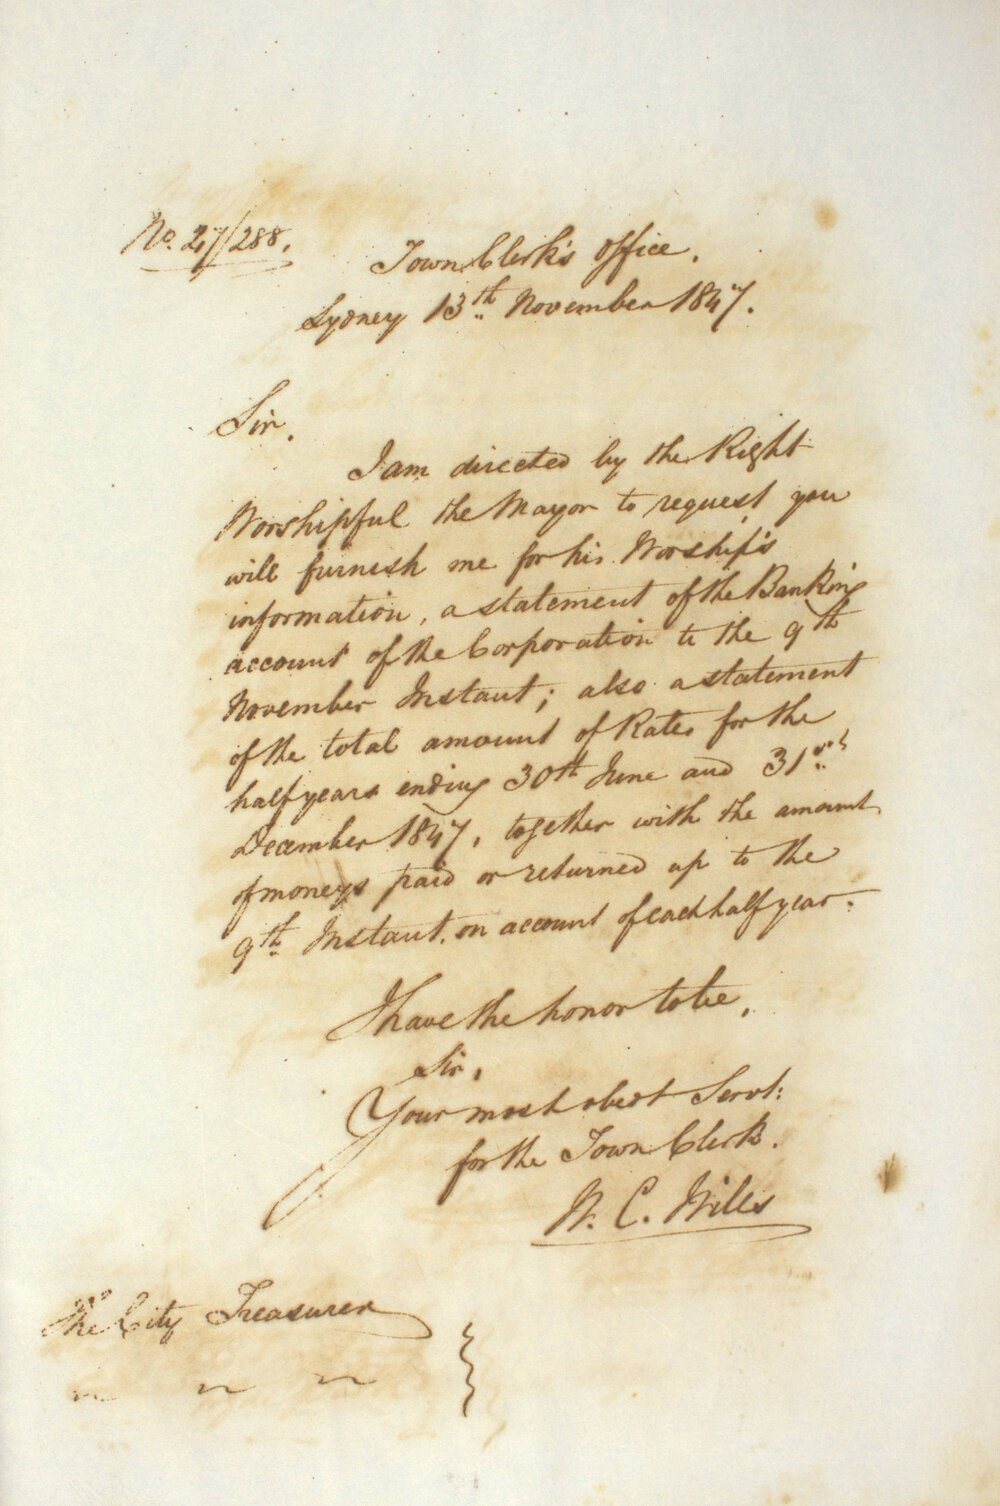 No. 47/288.
Town Clerk's Office,
Sydney 13th November 1847.
Sir,
I am directed by the Right
Worshipful the Mayor to request you
will furnish me for his Worship's
information, a statement of the Banking
account of the Corporation to the 9th
November Instant; also a statement
of the total amount of Rates for the
half years ending 30th June and 31st
December 1847, together with the amount
of moneys paid or returned up to the
9th Instant, on account of each half year.
I have the honor to be,
Sir,
Your most obedt Servt:
for the Town Clerk.
W. C. Wills
The City Treasurer